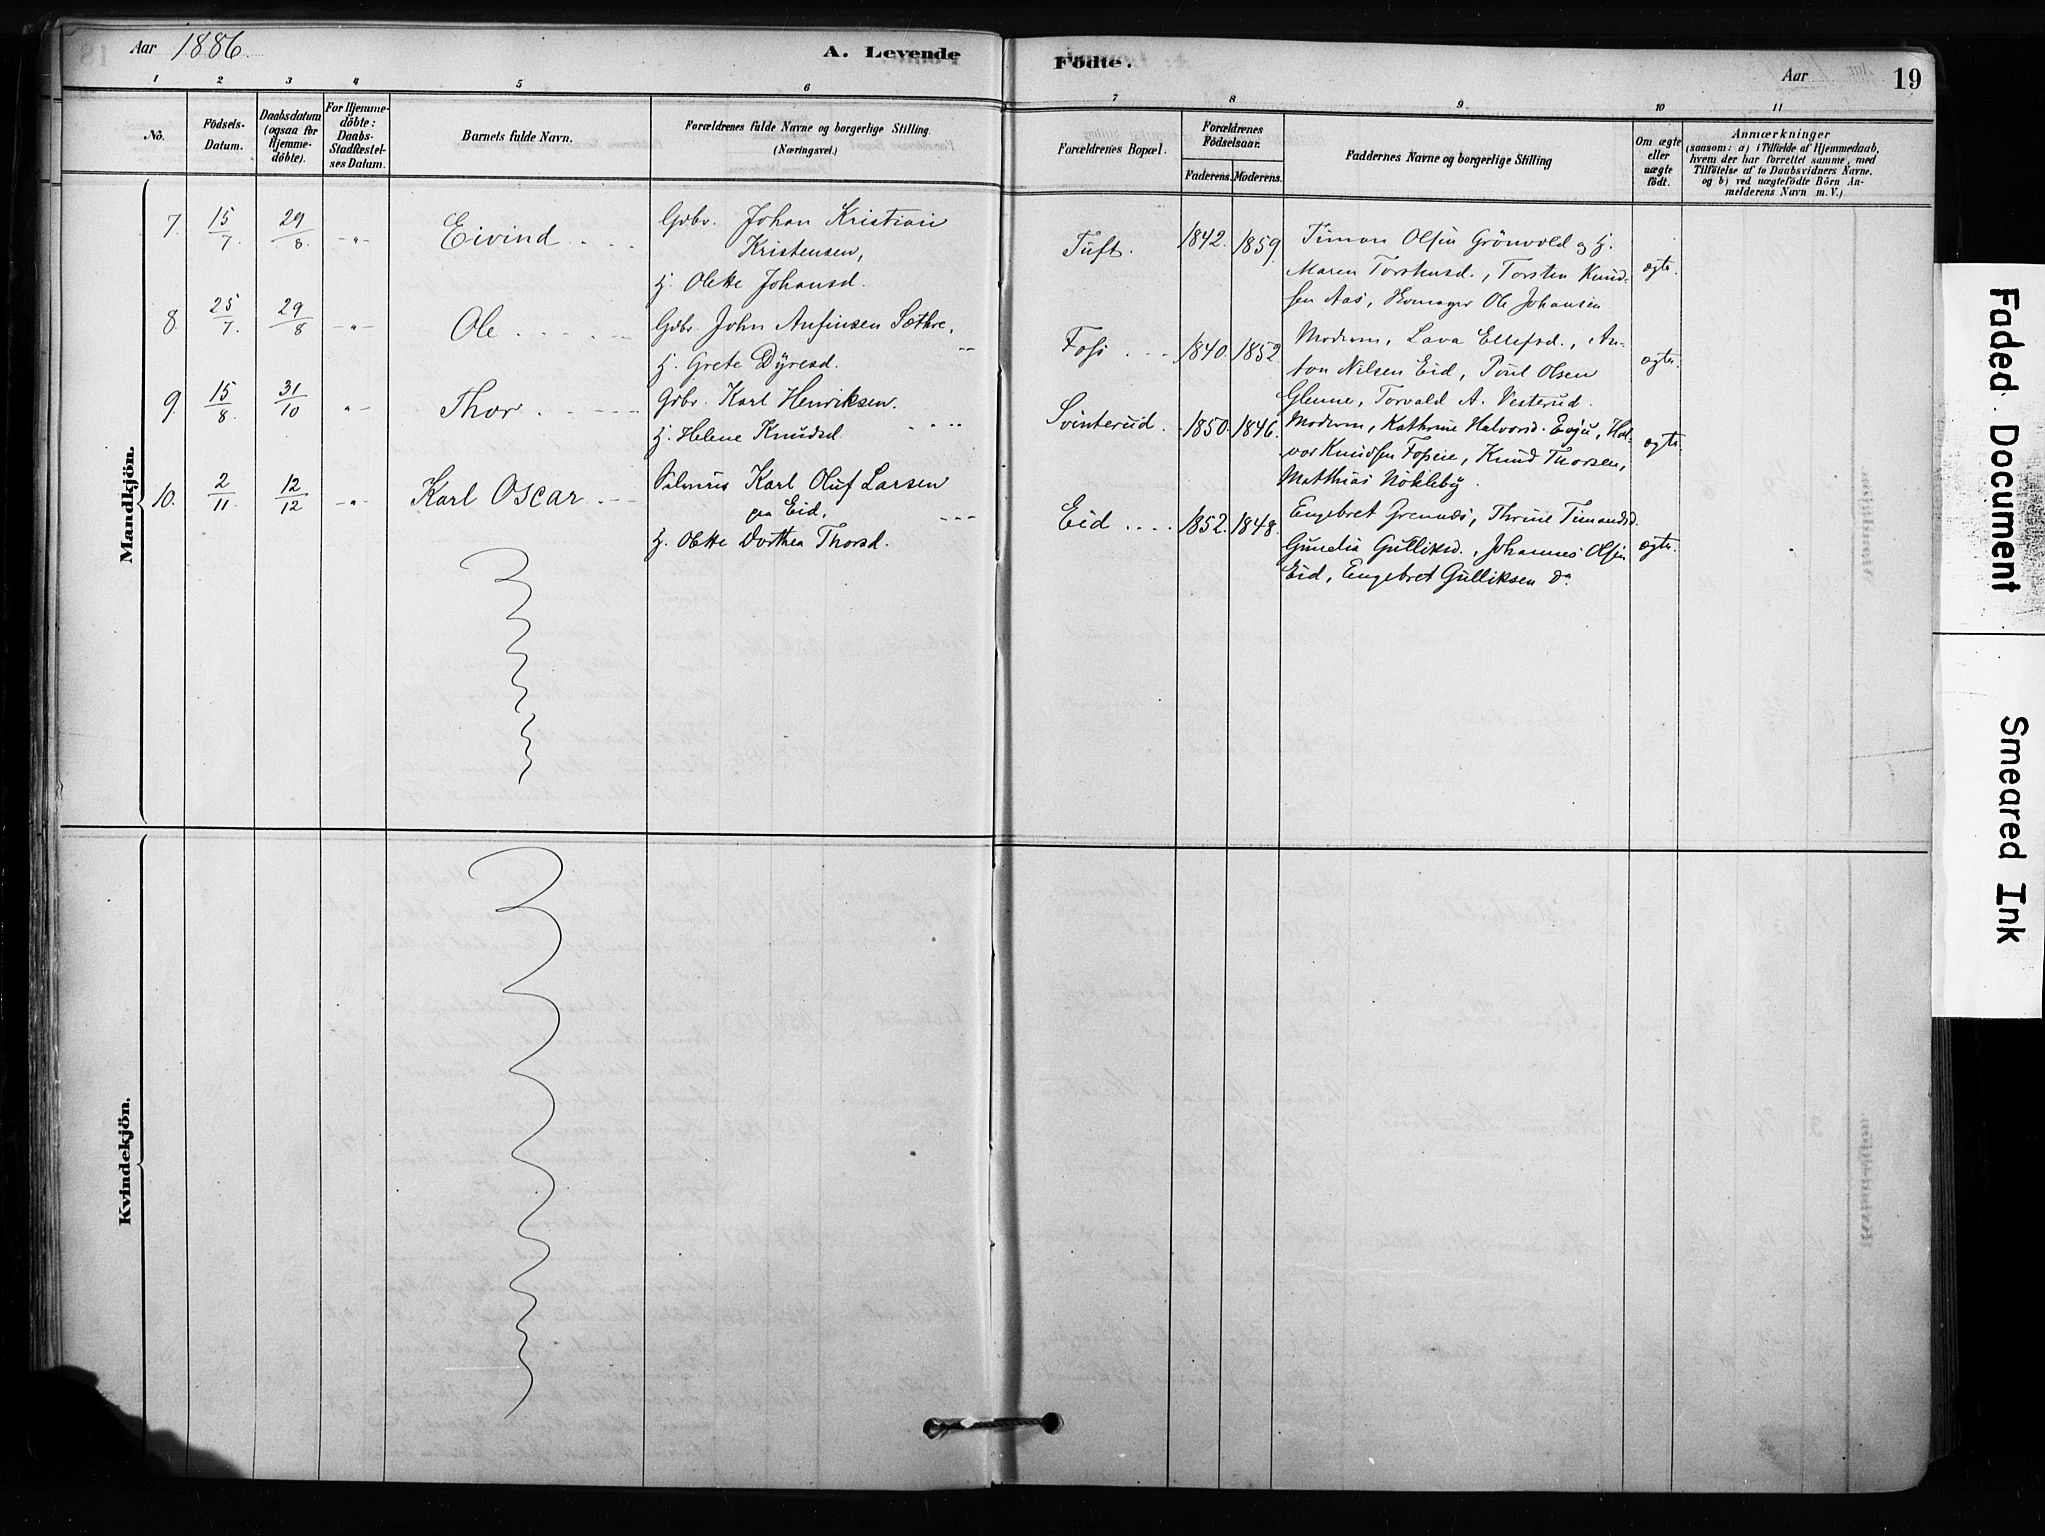 Aar 1886.
A. Levende Födte.
Aar 19
1 2 3 4 5 6 7 8 9 10 11
No.
Födsels-
Datum.
Daabsdatum
(ogsaa for
Hjemme-
döbte).
For Hjemme-
döbte:
Daabs-
Stadfæstel-
ses Datum.
Barnets fulde Navn.
Forældrenes fulde Navne og borgerlige Stilling
(Næringsvei.)
Forældrenes Bopæl.
Forældrenes
Födselsaar.
Faderens. Moderens.
Faddernes Navne og borgerlige Stilling
Om ægte
eller
uægte
födt.
Anmærkninger
(saasom: a) i Tilfælde af Hjemmedaab,
hvem der har forrettet samme, med
Tilföielse af to Daabsvidners Navne.
og b) ved uægtefödte Börn An-
melderens Navn m. V.)
Mandkjön.
7. 15/7. 29/8. -"- Eivind
Gdbr. Johan Kristian
Kristensen,
H. Olette Johansd.
Tuft. 1842. 1859.
Timan Olsen Grönvold og H.
Maren Torstensd., Torsten Knud-
sen Aas, Ole Johansen
ægte.
8. 25/7. 29/8 -"- Ole
Gdbr. John Anfinsen Sæthre,
H. Grete Dyresd.
Foss 1840. 1852.
Moderen, Lava Ellefsd., An-
ton Nilsen Eid, Poul Olsen
Glenne, Torvald A. Vesterud.
ægte.
9. 15/8. 31/10 "- Thor
Gdbr. Karl Henriksen.
H. Helene Knudsd.
Svinterud. 1850. 1846.
Moderen, Kathrine Halvorsd. Evju, Hal-
vor Knudsen Fosseie, Knud Thorsen,
Matthias Nökleby.
ægte.
10. 2/11. 12/12 -"- Karl Oscar
Karl Oluf Larsen
paa Eid,
H. Olette Dorthea Thorsd.
Eid 1852. 1848.
Engebret Grennes, Thrine Timandsd.
Gunelia Gulliksd., Johannes Olsen
Eid, Engebret Gulliksen Do
ægte.
Kvindekjön.
Faded Document
Smeared Ink